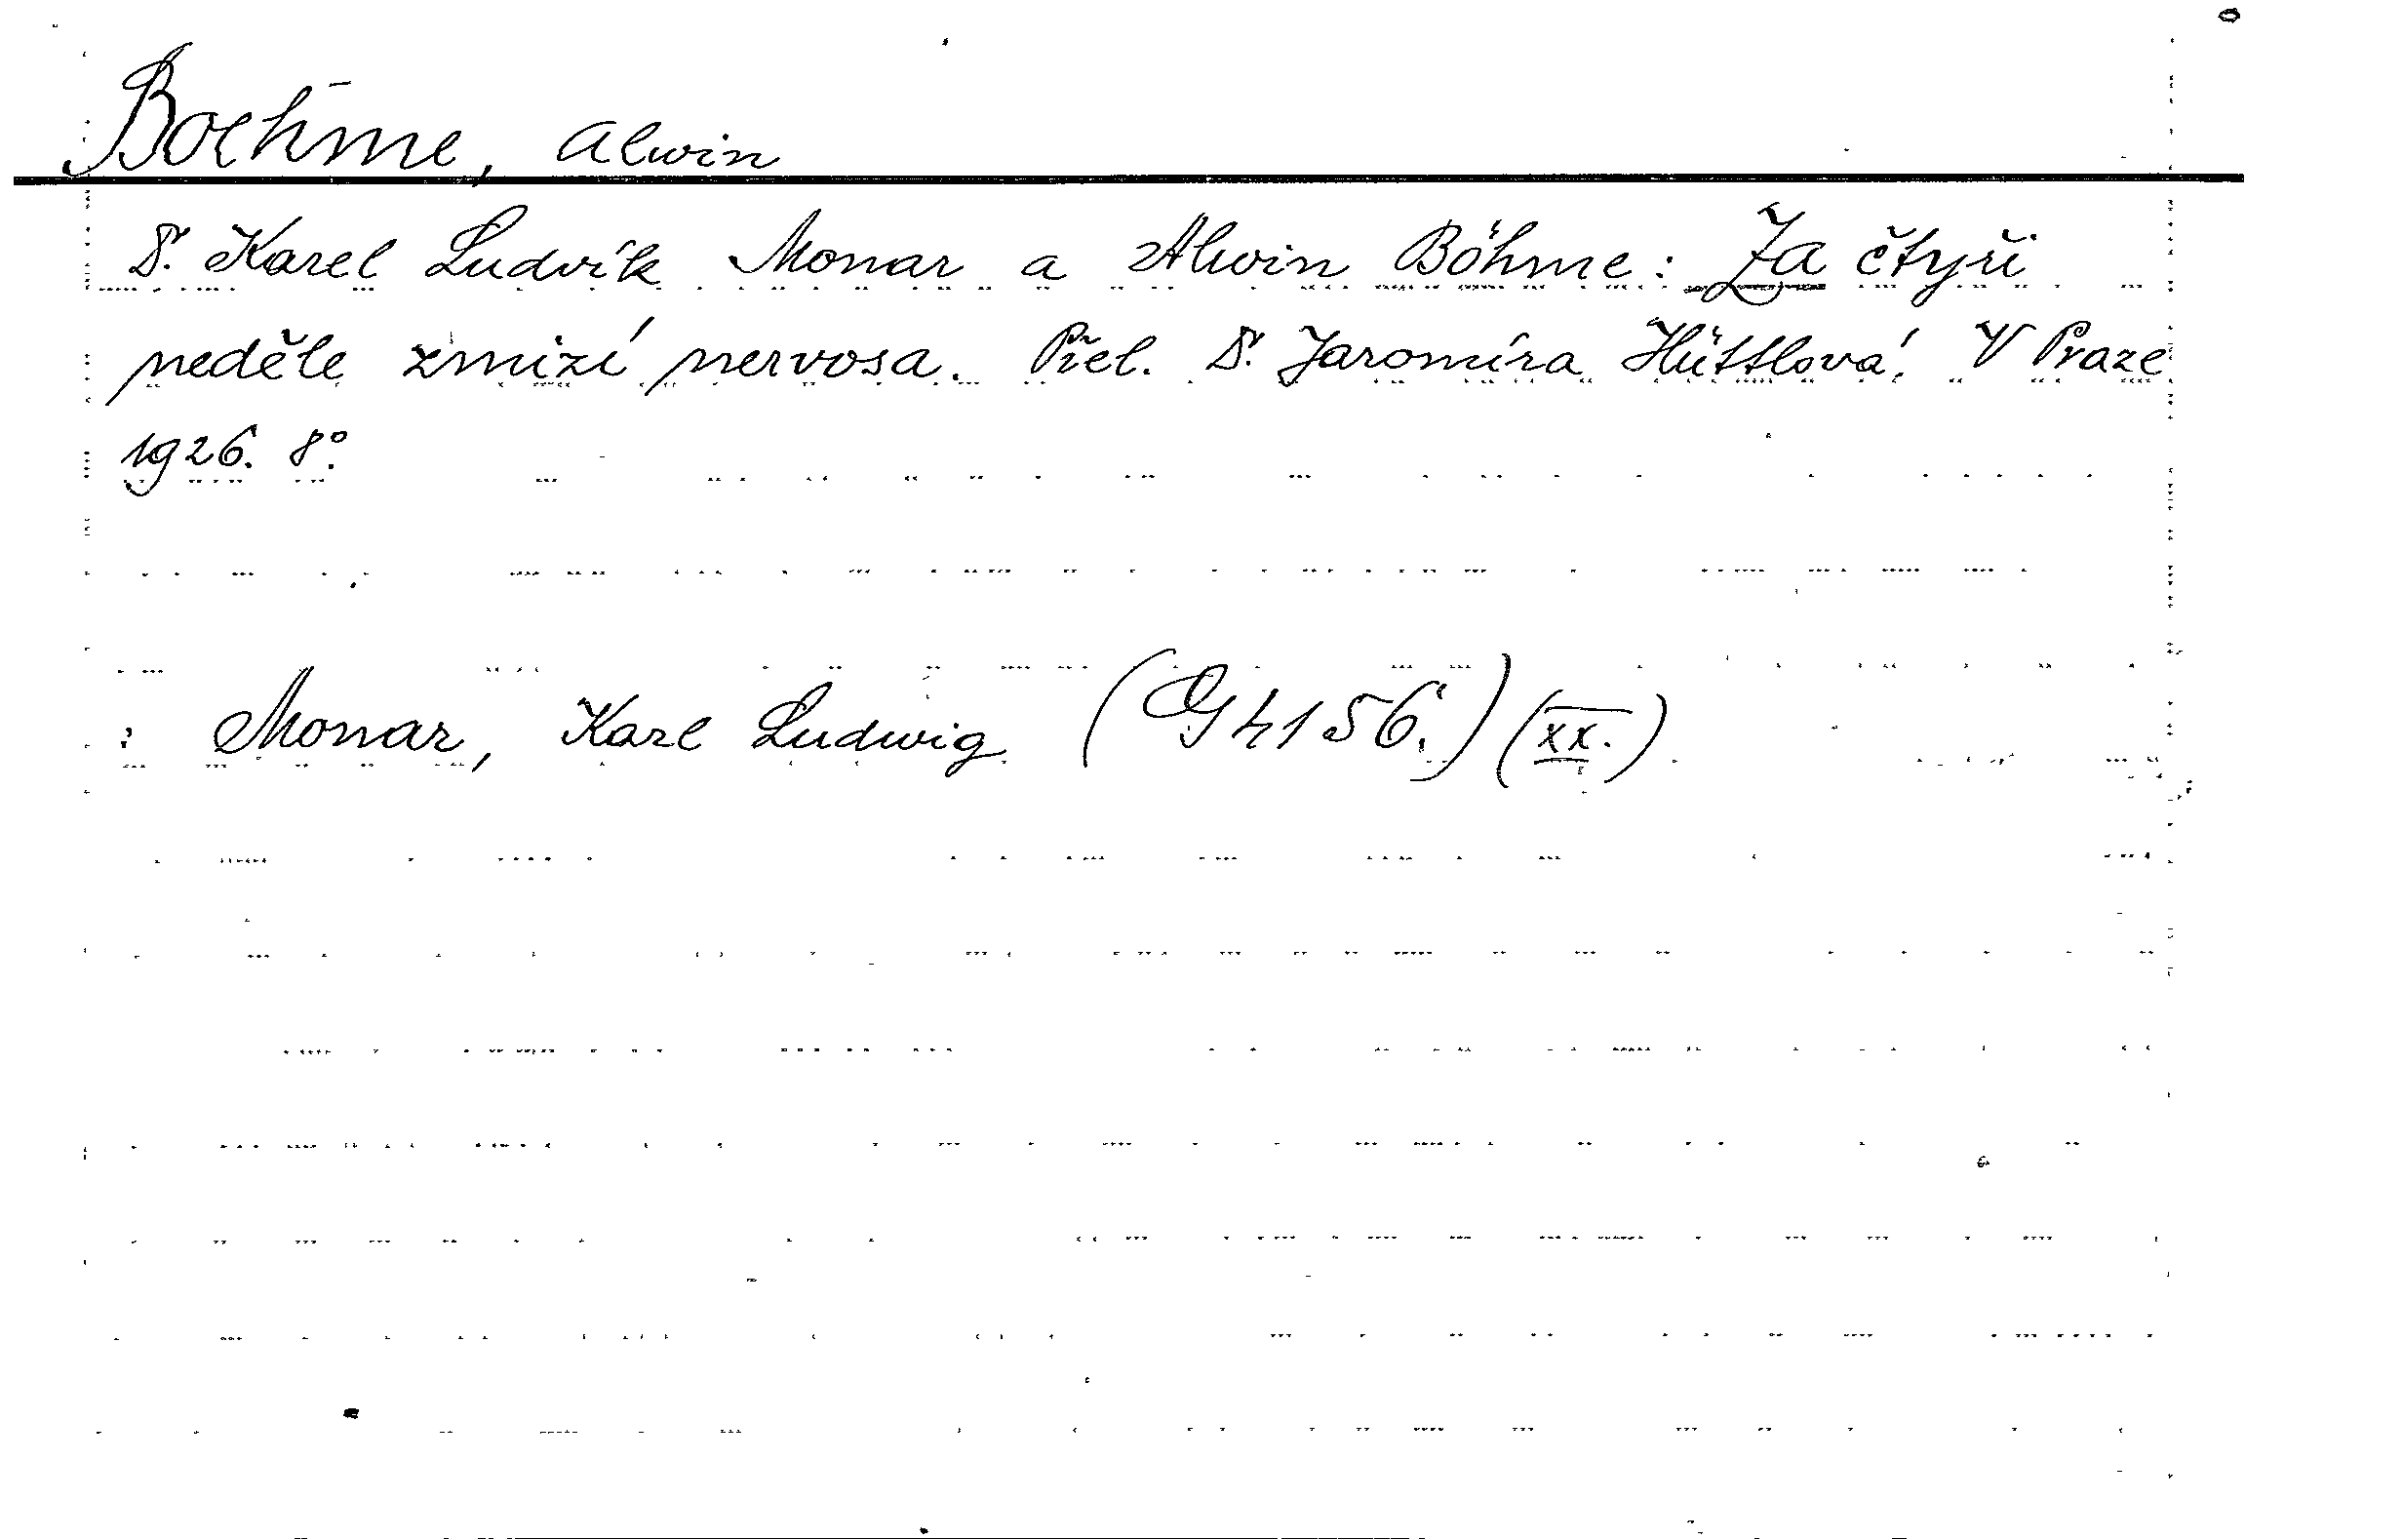 Boehme, Alwin
Dr. Karel Ludvík Monar a Alwin Böhme: Za čtyři
neděle zmizí nervosa. Přel. Dr. Jaromíra Hüttlová. V Praze
1926. 8°.
: Monar, Karl Ludwig (G h 156.) (XX.)